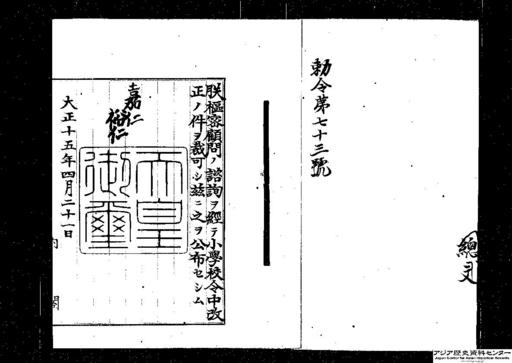 勅令第七十三號
朕樞密顧問ノ諮詢ヲ經テ小學校令中改
正ノ件ヲ裁可シ茲ニ之ヲ公布セシム
嘉仁
裕仁
天皇
御璽
大正十五年四月二十一日
内閣
アジア歴史資料センター
Japan Center for Asian Historical Records